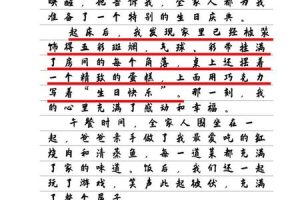 唤醒，抱告诉我，全家人都为我
准备了一个特别的生日庆典。
起床后，我发现家里已经被装
饰得五彩斑斓，气球、彩带挂满
了房间的每个角落，桌上还摆着
一个精致的蛋糕，上面用巧克力
写着“生日快乐”。那一刻，我
的心里充满了感动和幸福。
午餐时间，全家人围坐在一
起，爸爸亲手做了我最爱吃的红
烧肉和清蒸鱼，每一道菜都充满
了家的味道。饭后，我们还一起
玩了游戏，笑声此起彼伏，充满
了整个屋子。